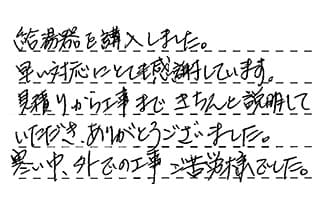 給湯器を購入しました。
早い対応にとても感謝しています。
見積りから工事まできちんと説明して
いただき、ありがとうございました。
寒い中、外での工事ご苦労様でした。